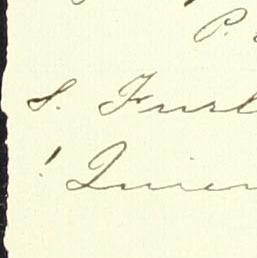 P.
S. Furl
! Quien